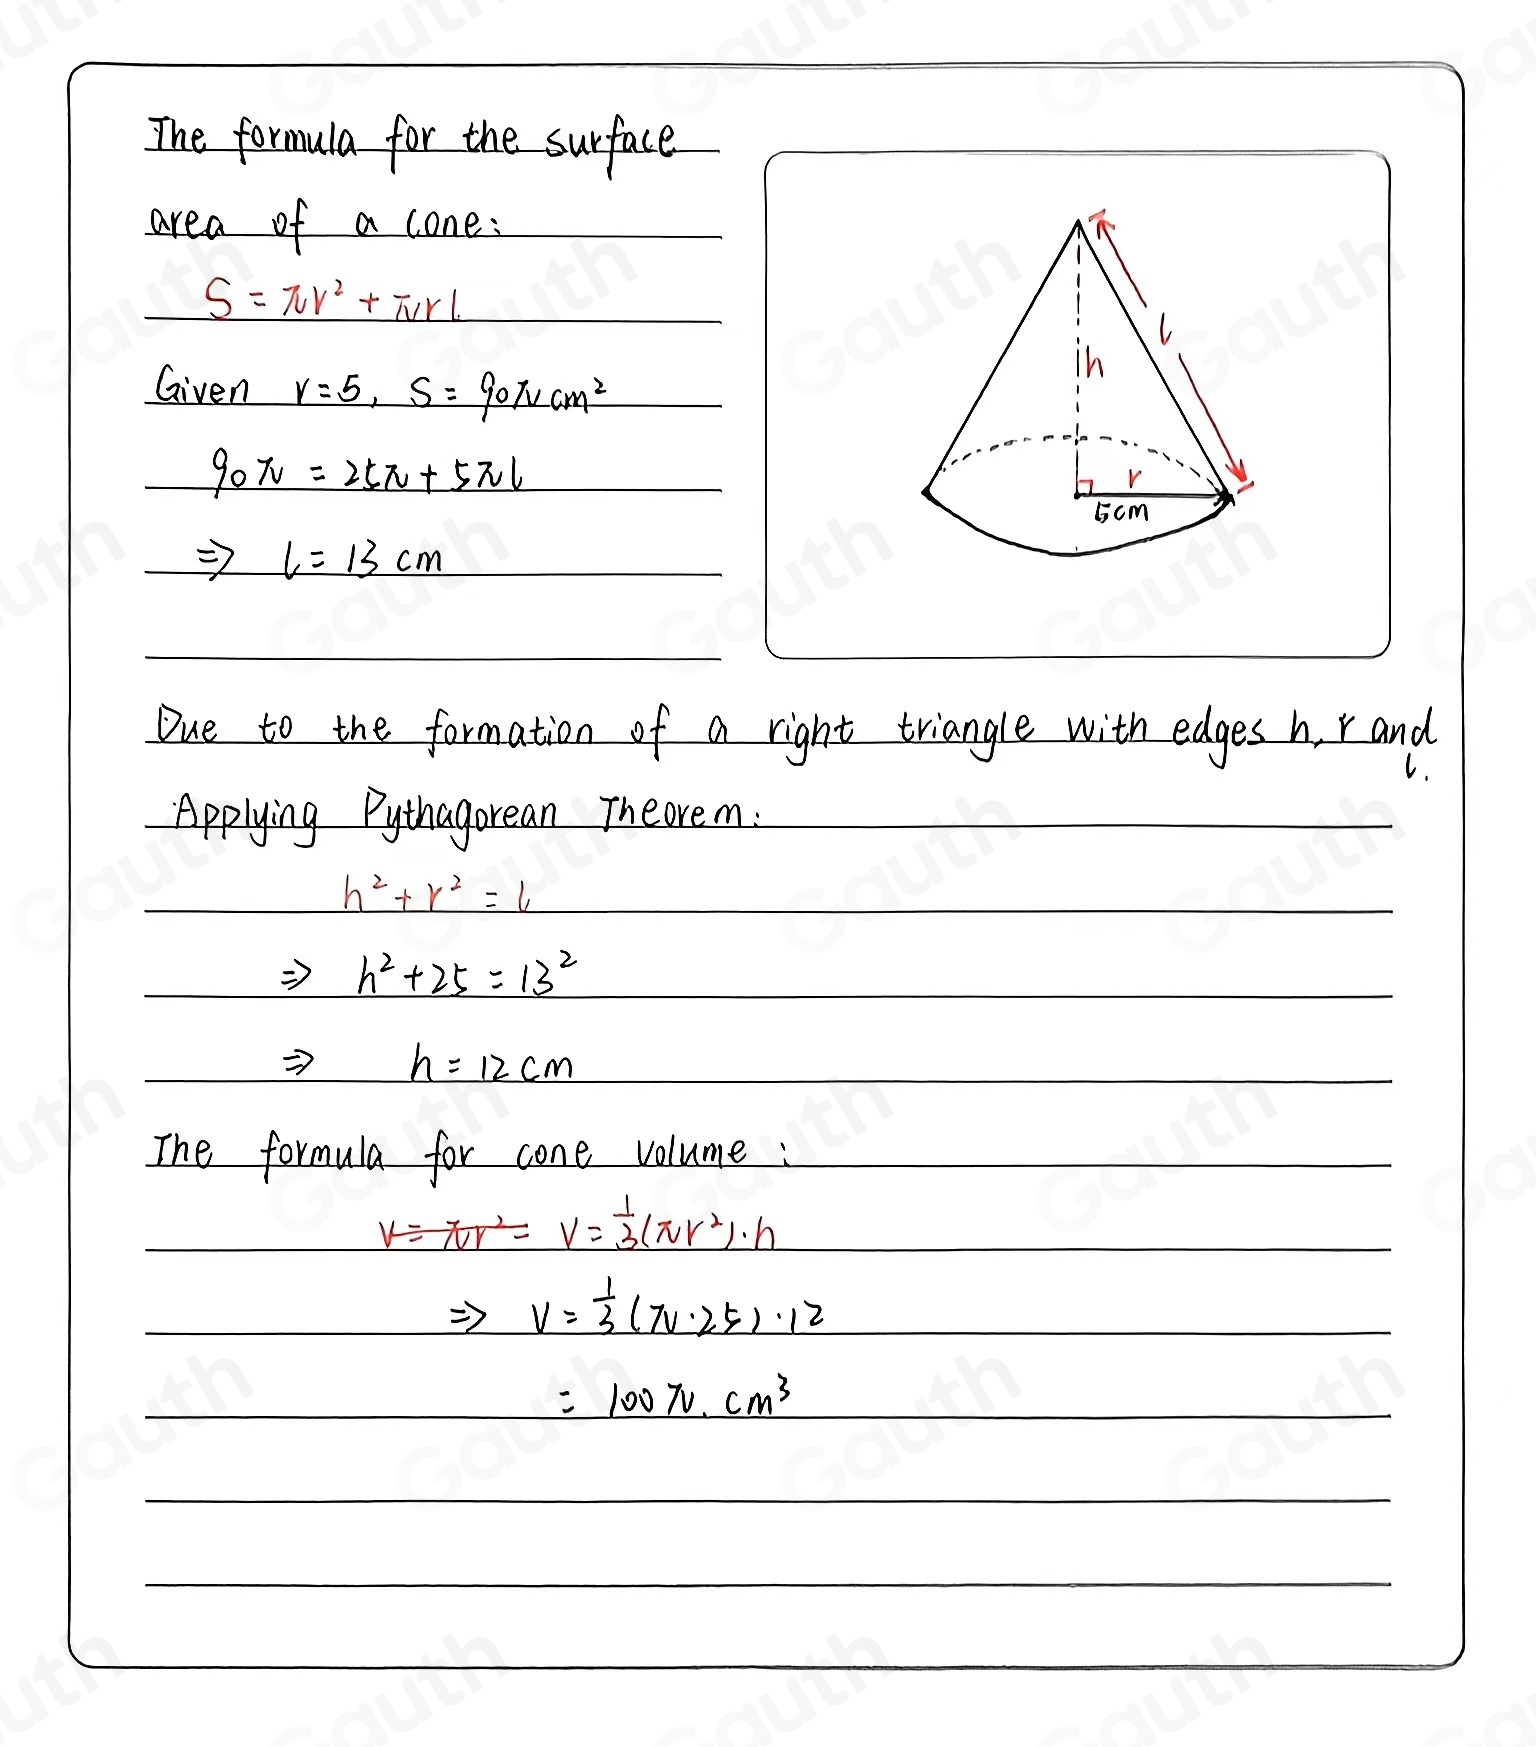 The formula for the surface
area of a cone:
S = πr² + πrl
Given r=5, S= 90π cm²
90π = 25π + 5πl
⇒ l = 13 cm
l
h
r
5cm
Due to the formation of a right triangle with edges h, r and
l.
Applying Pythagorean Theorem:
h² + r² = l
⇒ h² + 25 = 13²
⇒ h = 12 cm
The formula for cone volume:
V = πr² = V = 1/3 (πr²)·h
⇒ V = 1/3 (π·25)·12
= 100π. cm³
Gauth